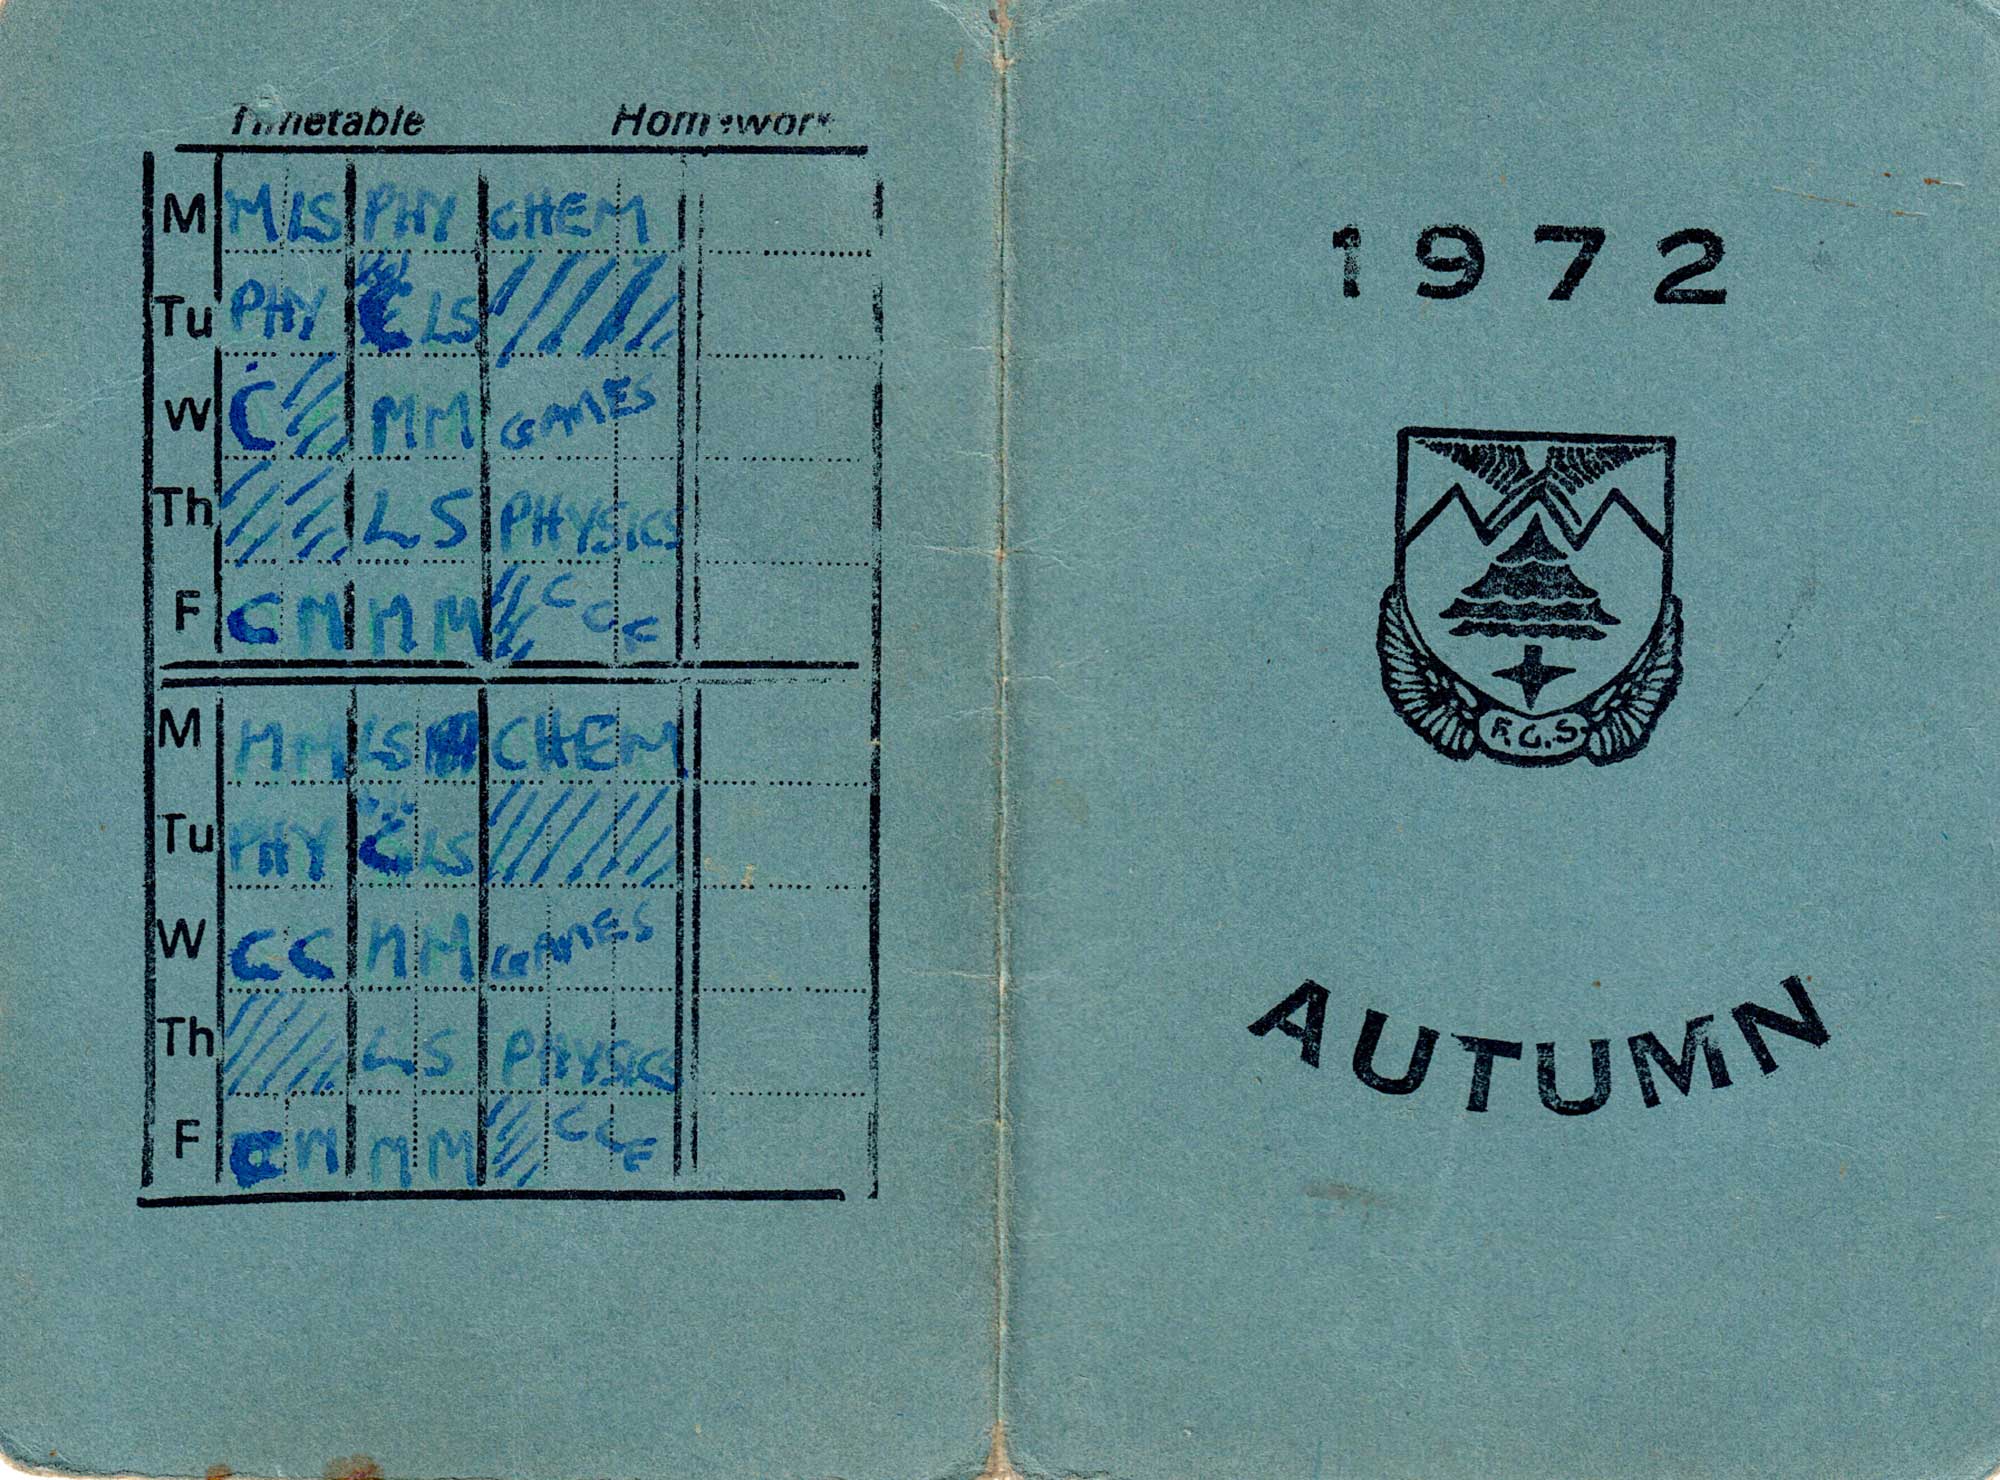 Timetable Homework
M M LS PHY CHEM
Tu PHY C LS
W C M M GAMES
Th L S PHYSICS
F C M M M C C F
M M M LS CHEM
Tu PHY C LS
W C C M M GAMES
Th L S PHYSICS
F C M M M C C F
1972
F.G.S.
AUTUMN